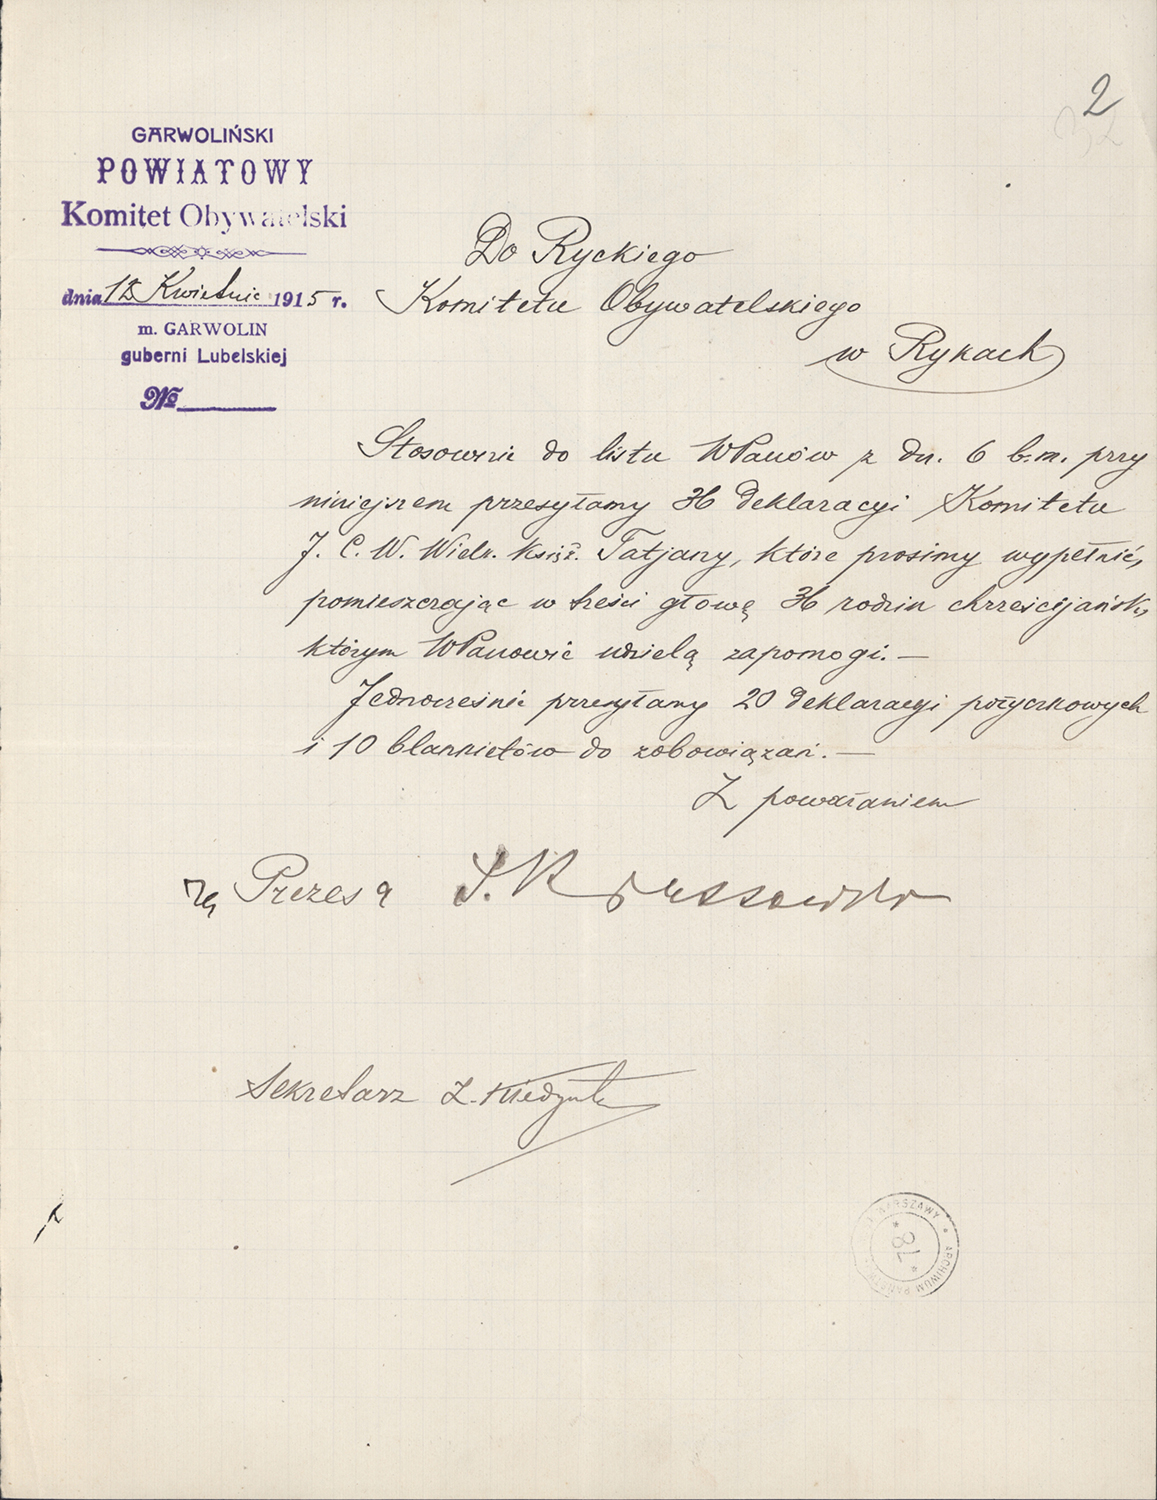 2
GARWOLIŃSKI
POWIATOWY
Komitet Obywatelski
dnia 12 Kwietnia 1915 r.
m. GARWOLIN
guberni Lubelskiej
№
Do Ryckiego
Komitetu Obywatelskiego
w Rykach
Stosownie do listu WPanów z dn. 6 b.m. przy
niniejszem przesyłamy 36 deklaracyi Komitetu
J. C. W. Wielk. Księż. Tatjany, które prosimy wypełnić,
pomieszczając w treści głowę 36 rodzin chrześcijańsk.,
którym WPanowie udzielą zapomogi. —
Jednocześnie przesyłamy 20 deklaracyi pożyczkowych
i 10 blankietów do zobowiązań. —
Z poważaniem
za Prezesa
Sekretarz
WARSZAWY * ARCHIWUM PAŃSTW.
* 78 *